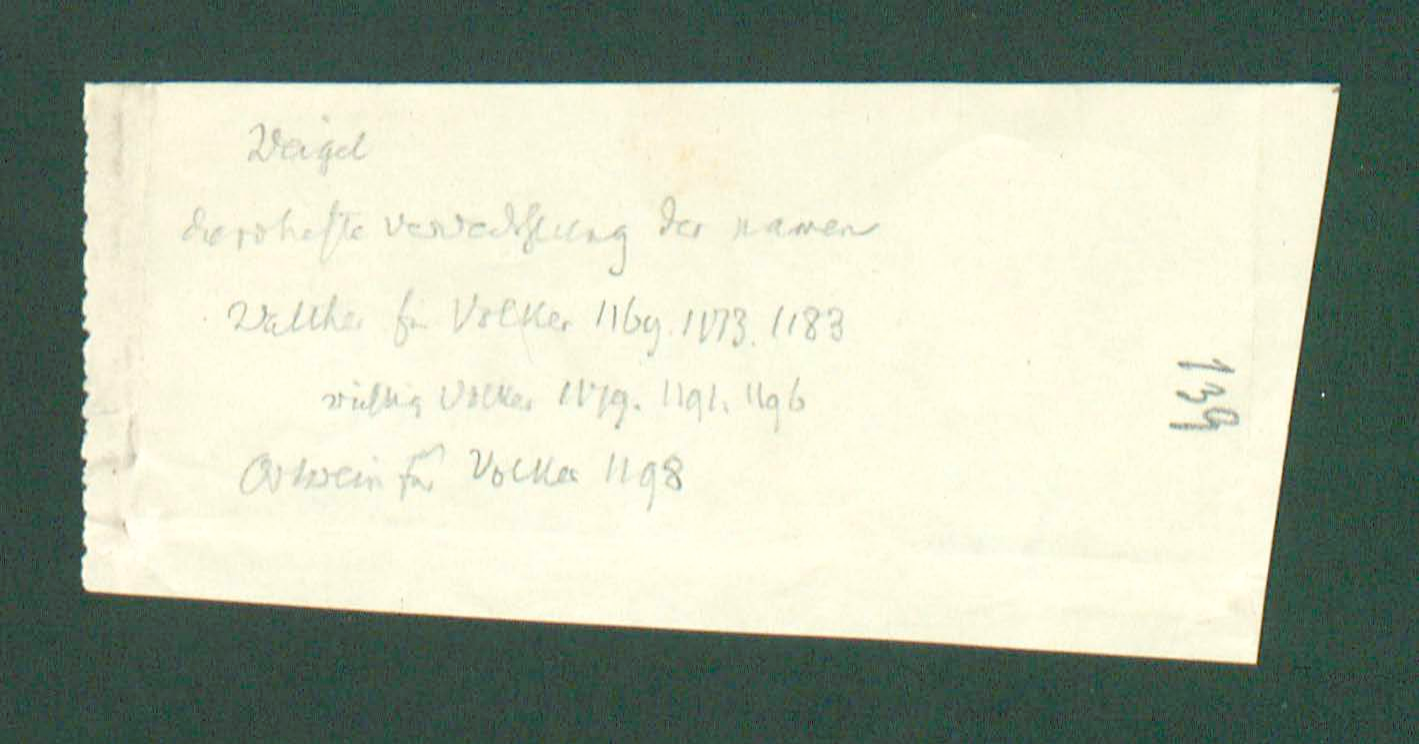 Weigel
verwechslung der namen
Walther für Volker 1169. 1173. 1183
richtig Volker 1179. 1191. 1196
Ortwein für Volker 1198
139